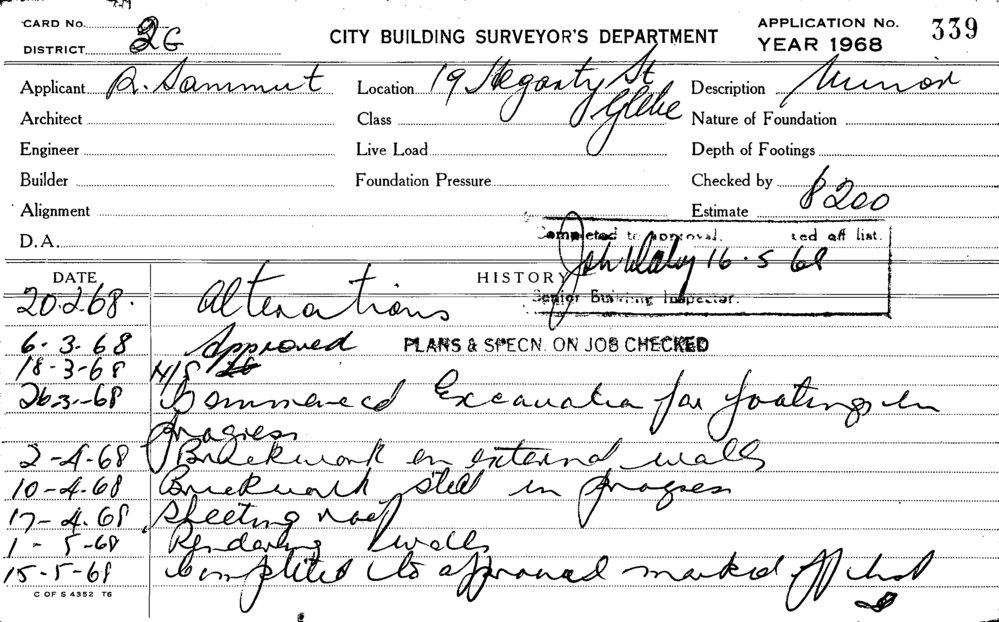 CARD No.
DISTRICT 2G
CITY BUILDING SURVEYOR'S DEPARTMENT
APPLICATION No. 339
YEAR 1968
Applicant R. Sammut
Location 19 Hegarty St
Glebe
Description Minor
Architect
Class
Nature of Foundation
Engineer
Live Load
Depth of Footings
Builder
Foundation Pressure
Checked by
Alignment
Estimate $200
D.A.
Completed to approval. ted off list.
16.5 68
Senior Building Inspector.
DATE
HISTORY
20.2.68. Alterations
6.3.68 Approved PLANS & SPECN. ON JOB CHECKED
18-3-68 N/S
26-3-68 Commenced Excavation for footings in
progress
2-4-68 Brickwork on external walls
10-4-68 Brickwork still in progress
17-4.68 Sheeting roof
1-5-68 Rendering walls
15-5-68 Completed to approval marked off list
C OF S 4352 T6